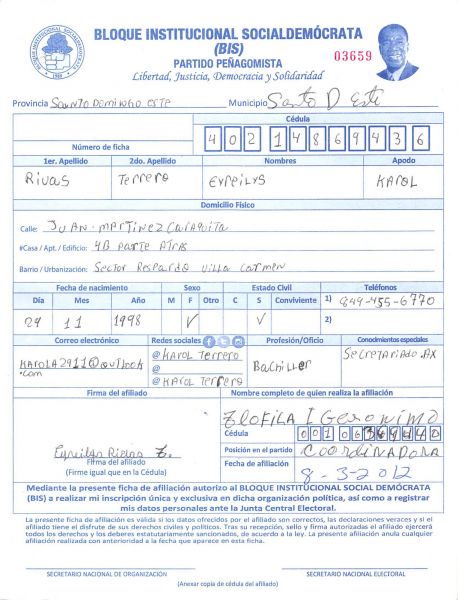 BLOQUE INSTITUCIONAL SOCIALDEMÓCRATA
(BIS)
PARTIDO PEÑAGOMISTA
Libertad, Justicia, Democracia y Solidaridad
03659
Provincia Santo Domingo este Municipio Santo D Este
Cédula
Número de ficha 4 0 2 1 4 8 6 9 4 3 6
1er. Apellido 2do. Apellido Nombres Apodo
Rivas Terrero KAROL
Domicilio Físico
Calle: JUAN MARTINEZ
#Casa / Apt. / Edificio: 4B Parte Atras
Barrio / Urbanización: Sector Respardo Villa Carmen
Fecha de nacimiento Sexo Estado Civil Teléfonos
Día Mes Año M F Otro C S Conviviente 1) 849-455-6770
29 11 1998 ✓ ✓ 2)
Correo electrónico Redes sociales Profesión/Oficio Conocimientos especiales
KAROLA2911@outlook @ Karol Terrero Bachiller Secretariado.AX
.com @
@ Karol Terrero
Firma del afiliado Nombre completo de quien realiza la afiliación
ZLOFILA I Geronimo
Cédula
Posición en el partido Coordinadora
Firma del afiliado Fecha de afiliación 8-3-2012
(Firme igual que en la Cédula)
Mediante la presente ficha de afiliación autorizo al BLOQUE INSTITUCIONAL SOCIAL DEMÓCRATA
(BIS) a realizar mi inscripción única y exclusiva en dicha organización política, así como a registrar
mis datos personales ante la Junta Central Electoral.
La presente ficha de afiliación es válida si los datos ofrecidos por el afiliado son correctos, las declaraciones veraces y si el
afiliado tiene el disfrute de sus derechos civiles y políticos. Tras su recepción, sello y firma autorizadas el afiliado ejercerá
todos los derechos y los deberes estatutariamente sancionados, de acuerdo a la ley. La presente afiliación anula cualquier
afiliación realizada con anterioridad a la fecha que aparece en esta ficha.
SECRETARIO NACIONAL DE ORGANIZACIÓN SECRETARIO NACIONAL ELECTORAL
(Anexar copia de cédula del afiliado)